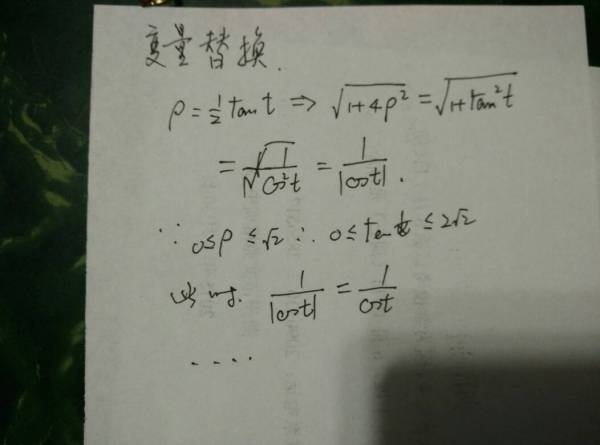 变量替换.
ρ = 1/2 tan t ⇒ √(1+4ρ²) = √(1+tan²t)
= √(1/cos²t) = 1/|cost|.
∵ 0≤ρ≤√2 ∴ 0≤tan t≤2√2
此时. 1/|cost| = 1/cost
....